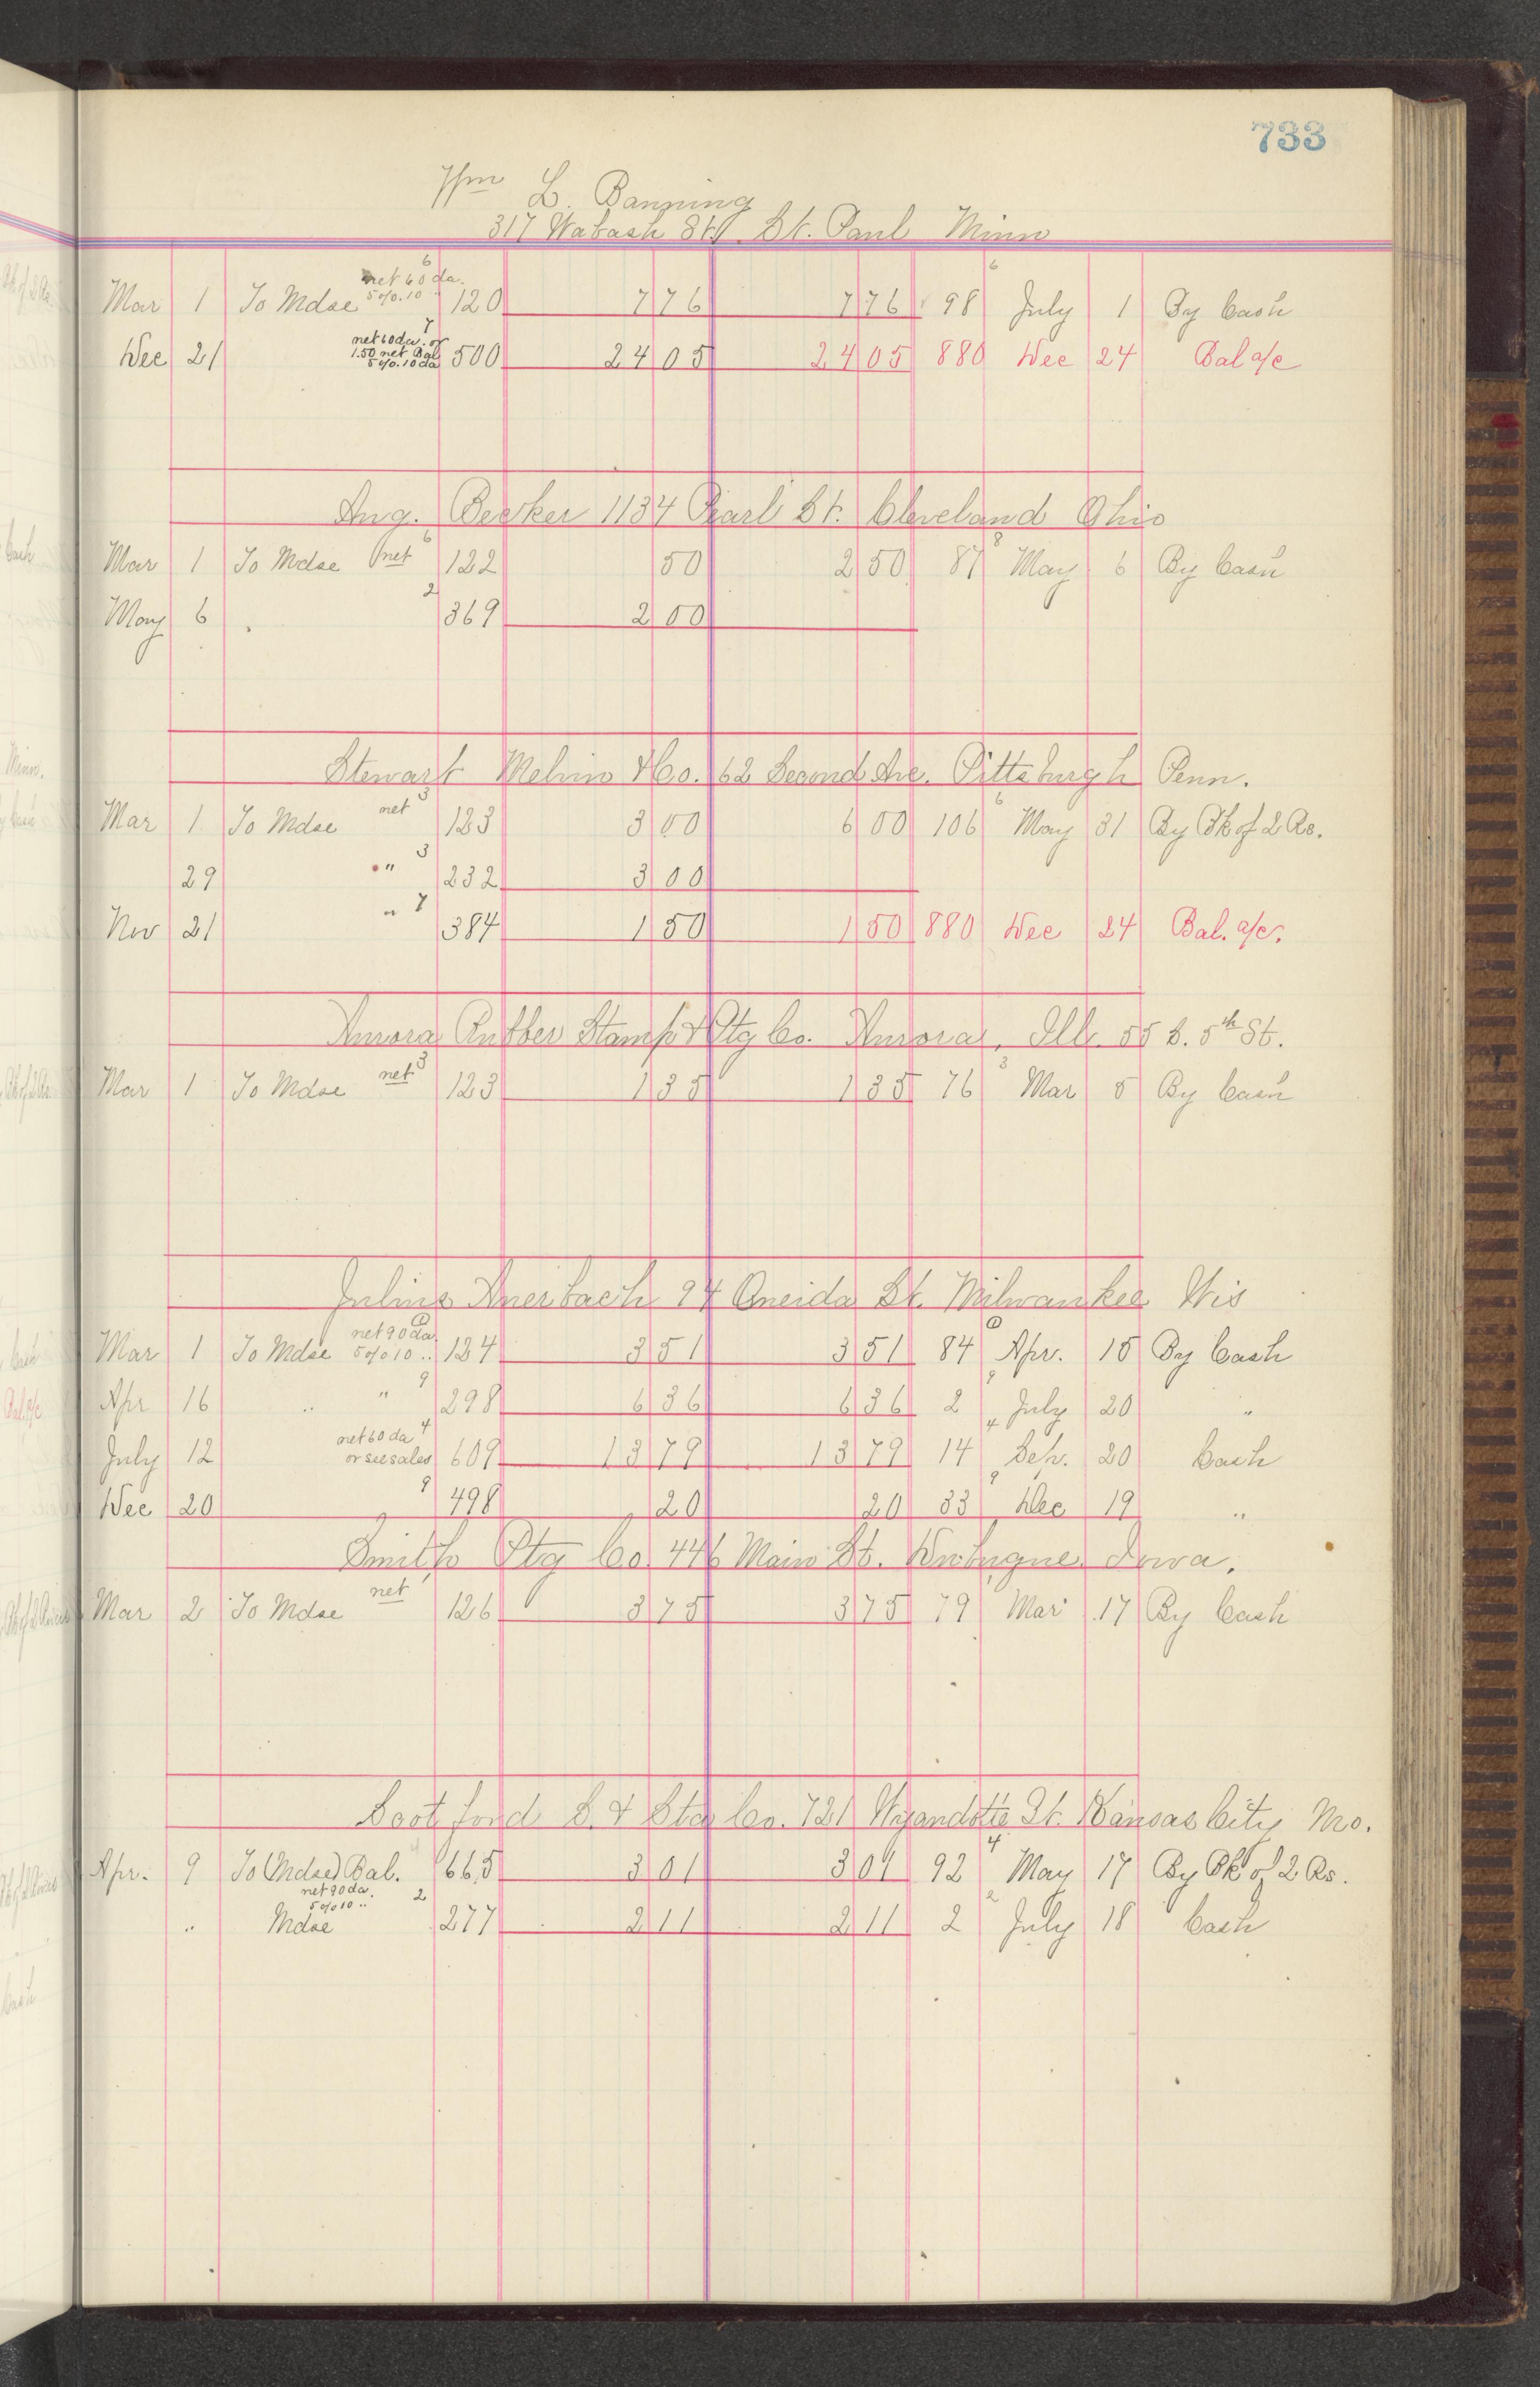 733
Wm L. Banning
317 Wabash St. St. Paul Minn
6 6
Mar 1 To Mdse net 60 da. 5% 10 " 120 7 76 7 76 98 July 1 By Cash
7
Dec 21 net 60 da. or 1.50 net Bal 5% 10 da 500 24 05 24 05 880 Dec 24 Bal a/c
Aug. Becker 1134 Pearl St. Cleveland Ohio
6 8
Mar 1 To Mdse net 122 50 2 50 87 May 6 By Cash
2
May 6 " 369 2 00
Stewart Melvin & Co. 62 Second Ave. Pittsburgh Penn.
3 6
Mar 1 To Mdse net 123 3 00 6 00 106 May 31 By Bk of 2 Rs.
3
29 " 232 3 00
7
Nov 21 " 384 1 50 1 50 880 Dec 24 Bal. a/c.
Aurora Rubber Stamp & Ptg Co. Aurora, Ill. 55 S. 5th St.
3 3
Mar 1 To Mdse net 123 1 35 1 35 76 Mar 5 By Cash
Julius Auerbach 94 Oneida St. Milwaukee Wis
1 1
Mar 1 To Mdse net 90 da. 5% 10 " 124 3 51 3 51 84 Apr. 15 By Cash
9 9
Apr 16 " " 298 6 36 6 36 2 July 20 "
4 4
July 12 net 60 da or see sales 609 13 79 13 79 14 Sep. 20 Cash
9 9
Dec 20 498 20 20 33 Dec 19 "
Smith Ptg Co. 446 Main St. Dubuque Iowa.
Mar 2 To Mdse net 126 3 75 3 75 79 Mar 17 By Cash
Bootford S. & Sta Co. 721 Wyandotte St. Kansas City Mo.
4
Apr. 9 To (Mdse) Bal. 665 3 01 3 01 92 May 17 By Bk of 2 Rs.
2 2
" Mdse net 90 da. 5% 10 " 277 2 11 2 11 2 July 18 Cash